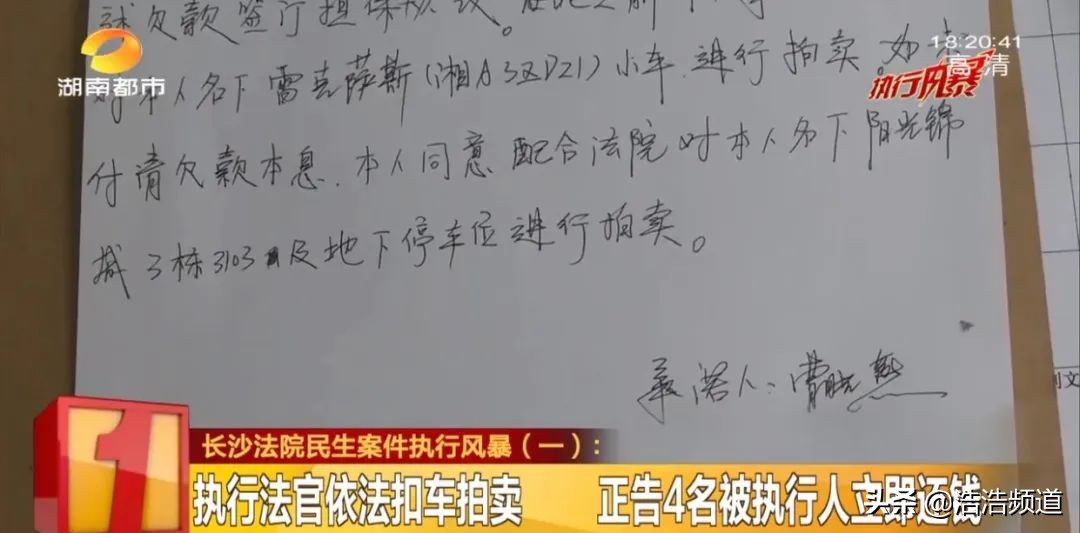 就欠款签订担保协议。
湖南都市
18:20:41
高清
执行风暴
对本人名下雷克萨斯(湘A3ZD21)小车进行拍卖。如未
付清欠款本息,本人同意配合法院对本人名下阳光锦
城3栋3103及地下停车位进行拍卖。
承诺人:
1
长沙法院民生案件执行风暴(一):
执行法官依法扣车拍卖 正告4名被执行人立即还钱
头条@浩浩频道